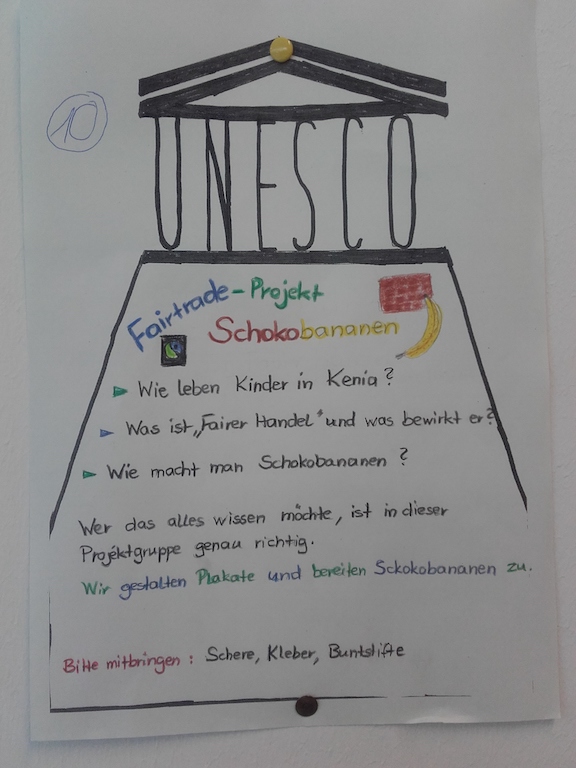 10
UNESCO
Fairtrade-Projekt
Schokobananen
Wie leben Kinder in Kenia?
Was ist „Fairer Handel“ und was bewirkt er?
Wie macht man Schokobananen?
Wer das alles wissen möchte, ist in dieser
Projektgruppe genau richtig.
Wir gestalten Plakate und bereiten Sckokobananen zu.
Bitte mitbringen: Schere, Kleber, Buntstifte